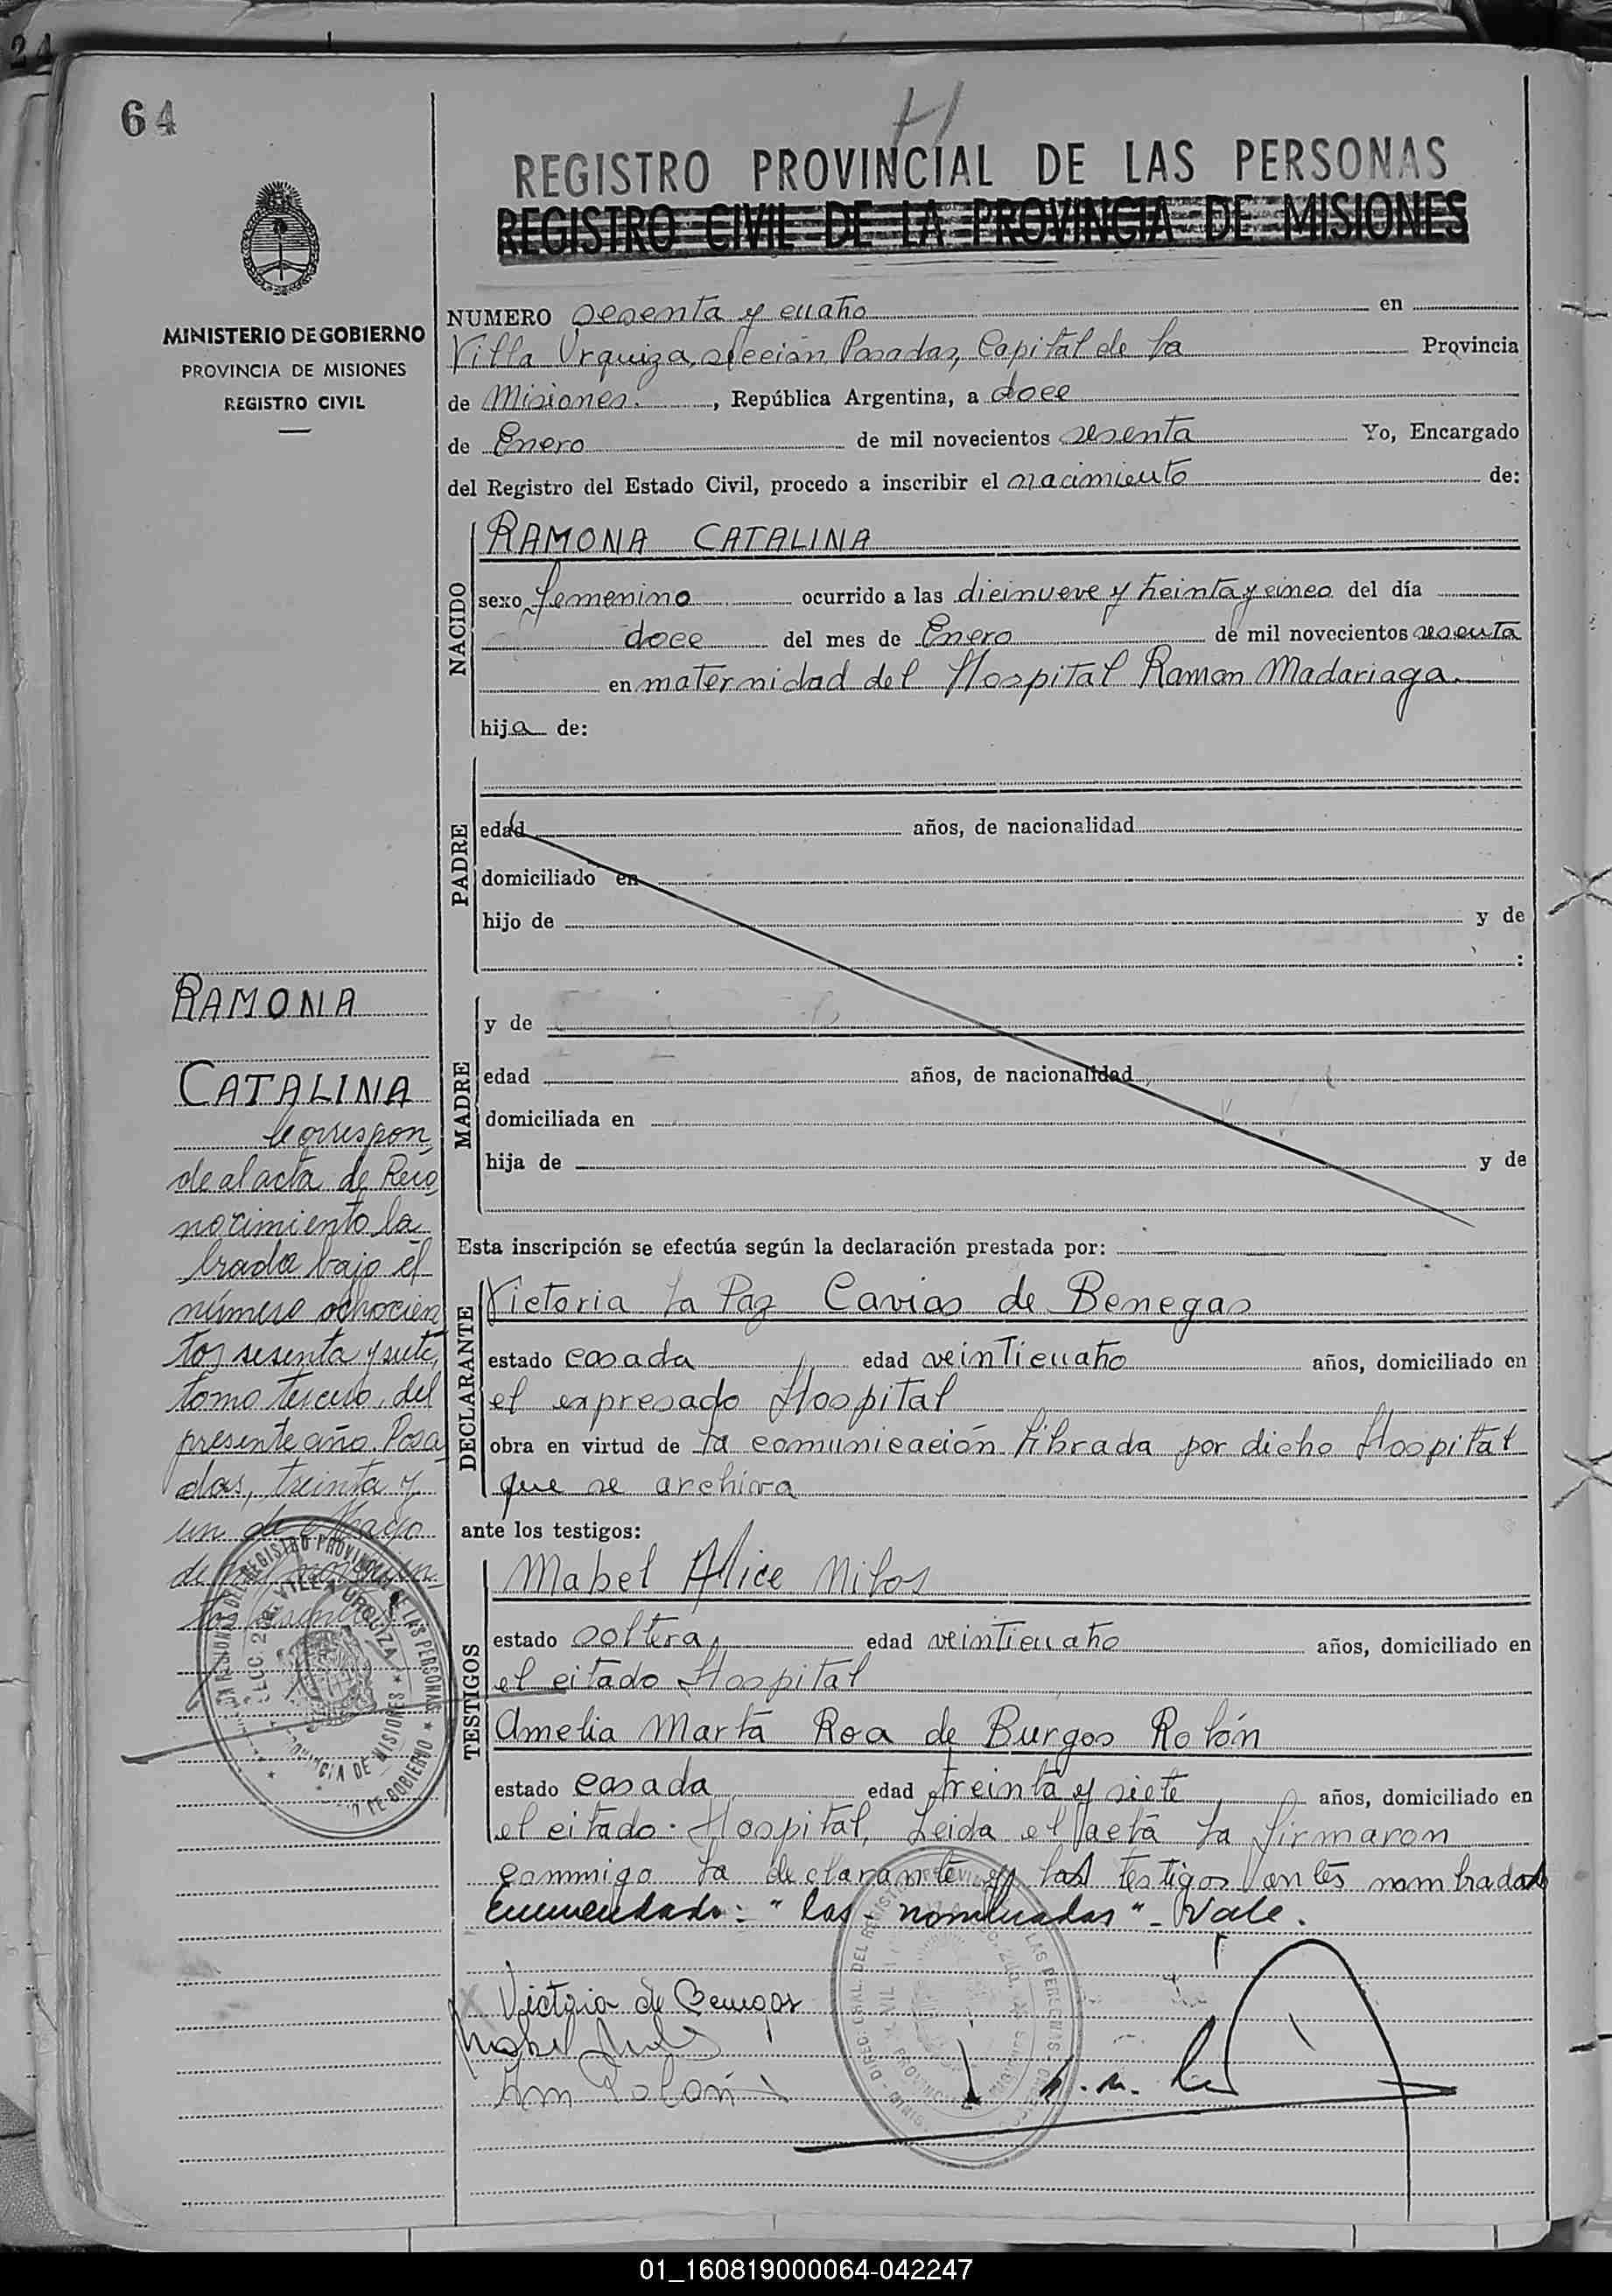 64
REGISTRO PROVINCIAL DE LAS PERSONAS
REGISTRO CIVIL DE LA PROVINCIA DE MISIONES
MINISTERIO DE GOBIERNO
PROVINCIA DE MISIONES
REGISTRO CIVIL
NUMERO sesenta y cuatro en
Villa Urquiza, sección Posadas, Capital de la Provincia
de Misiones. , República Argentina, a doce
de Enero de mil novecientos sesenta Yo, Encargado
del Registro del Estado Civil, procedo a inscribir el nacimiento de:
NACIDO
RAMONA CATALINA
sexo femenino ocurrido a las diecinueve y treinta y cinco del día
doce del mes de Enero de mil novecientos sesenta
en maternidad del Hospital Ramon Madariaga.
hija de:
PADRE
edad años, de nacionalidad
domiciliado en
hijo de y de
:
MADRE
y de
edad años, de nacionalidad
domiciliada en
hija de y de
Esta inscripción se efectúa según la declaración prestada por:
DECLARANTE
Victoria La Paz Cavias de Benegas
estado casada edad veinticuatro años, domiciliado en
el expresado Hospital
obra en virtud de la comunicación librada por dicho Hospital
que se archiva
ante los testigos:
TESTIGOS
Mabel Alice Milos
estado soltera, edad veinticuatro años, domiciliado en
el citado Hospital
Amelia Marta Roa de Burgos Rolón
estado casada edad treinta y siete años, domiciliado en
el citado Hospital, Leida el acta la firmaron
conmigo la declarante y las testigos antes nombradas
Enmendado: "las nombradas" - Vale.
Victoria de Benegas
Mabel
Am Rolón
RAMONA
CATALINA
Correspon
de al acta de Reco
nocimiento la
brada bajo el
número ochocien
tos sesenta y siete,
tomo tercero, del
presente año. Posa
das, treinta y
un de Mayo
de mil novecien
tos sesenta
REGISTRO PROVINCIAL DE LAS PERSONAS
SECC. 2da. VILLA URQUIZA
PROVINCIA DE MISIONES
01_160819000064-042247